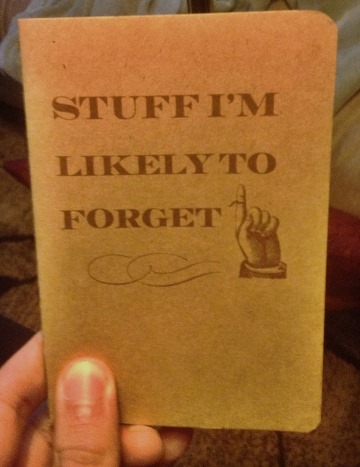 STUFF I'M
LIKELY TO
FORGET